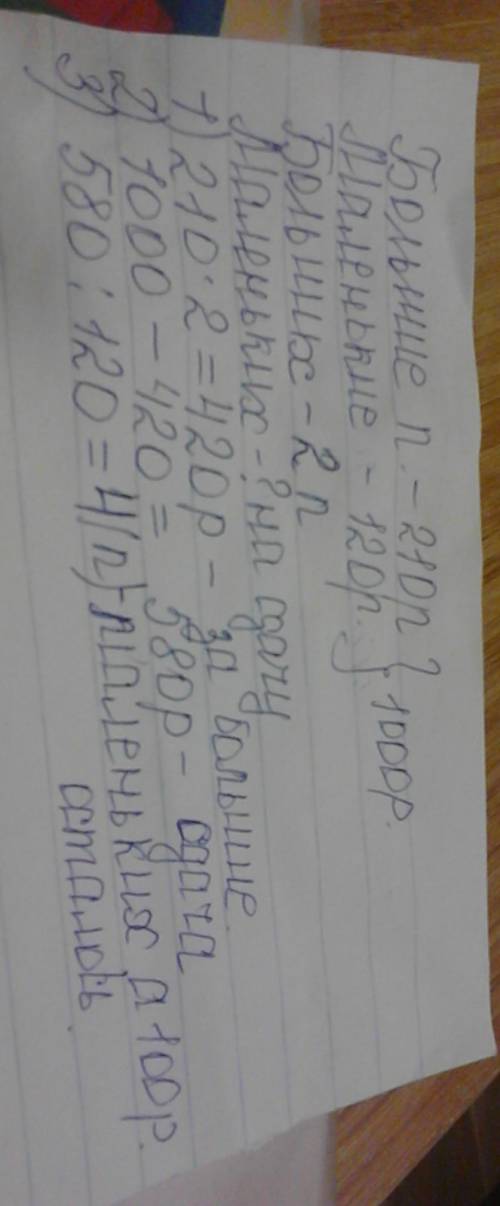 Большие п. - 210р } 1000р.
Маленькие - 120р.
Больших - 2п
Маленьких - ? на сдачу
1) 210·2=420р - за большие
2) 1000 - 420 = 580р - сдача
3) 580 : 120 = 4(п) - маленьких а 100р.
осталось